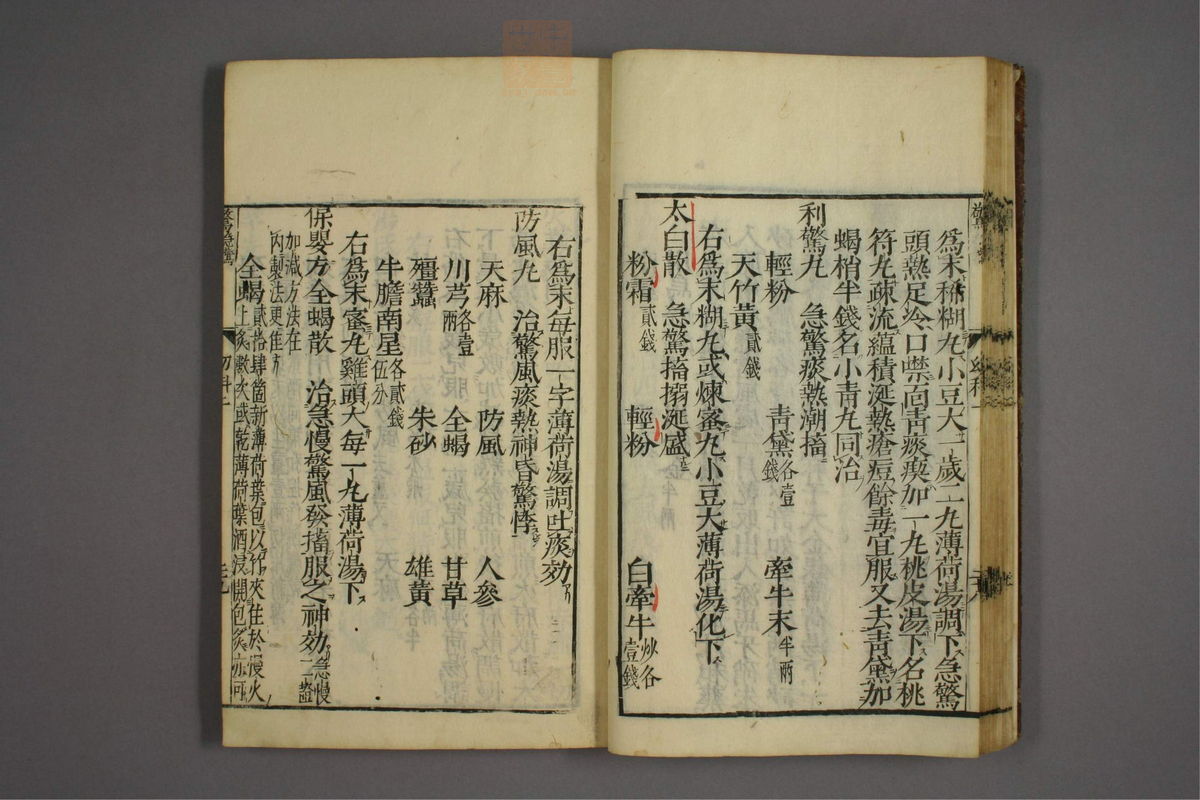 爲末稀糊丸小豆大一歲二丸薄荷湯調下急驚
頭熱足冷口噤面青痰瘈加一丸桃皮湯下名桃
符丸疎流蘊積涎熱瘡痘餘毒宜服又去青黛加
蝎梢半錢名小青丸同治
利驚丸 急驚痰熱潮搐
輕粉 青黛各壹錢 牽牛末半兩
天竹黃貳錢
右爲末糊丸或煉蜜丸小豆大薄荷湯化下
太白散 急驚搐搦涎盛
粉霜貳錢 輕粉 白牽牛炒各壹錢
右爲末每服一字薄荷湯調吐痰効
防風丸 治驚風痰熱神昏驚悸
天麻 防風 人參
川芎各壹兩 全蝎 甘草
殭蠶 朱砂 雄黃
牛膽南星各貳錢伍分
右爲末蜜丸雞頭大每一丸薄荷湯下
保嬰方全蝎散 治急慢驚風發搐服之神効急慢二證
加減方法在
內製法更佳
全蝎貳拾肆箇新薄荷葉包以竹夾住於慢火
上炙數次或乾薄荷葉酒浸開包炙亦可